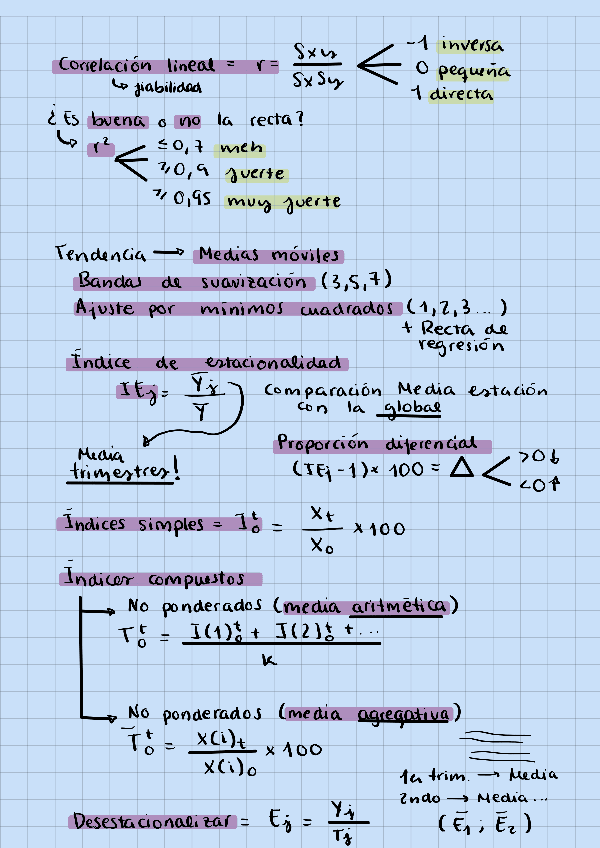 Correlación lineal = r = Sxy / SxSy
-1 inversa
0 pequeña
1 directa
↳ fiabilidad
¿Es buena o no la recta?
↳ r²
≤0,7 meh
≥0,9 fuerte
≥0,95 muy fuerte
Tendencia → Medias móviles
Bandas de suavización (3,5,7)
Ajuste por mínimos cuadrados (1,2,3...)
+ Recta de
regresión
Índice de estacionalidad
IEj = Ȳj / Ȳ
Comparación Media estación
con la global
Media
trimestres!
Proporción diferencial
(IEj-1)×100 = △
>0↓
<0↑
Índices simples = I₀ᵗ = Xt / X₀ ×100
Índices compuestos
→ No ponderados (media aritmética)
Ī₀ᵗ = I(1)₀ᵗ + I(2)₀ᵗ + ... / k
→ No ponderados (media agregativa)
Ī₀ᵗ = X(i)t / X(i)₀ ×100
1er trim. → Media
2ndo → Media...
(Ē₁ ; Ē₂)
Desestacionalizar = Ej = Yj / Tj